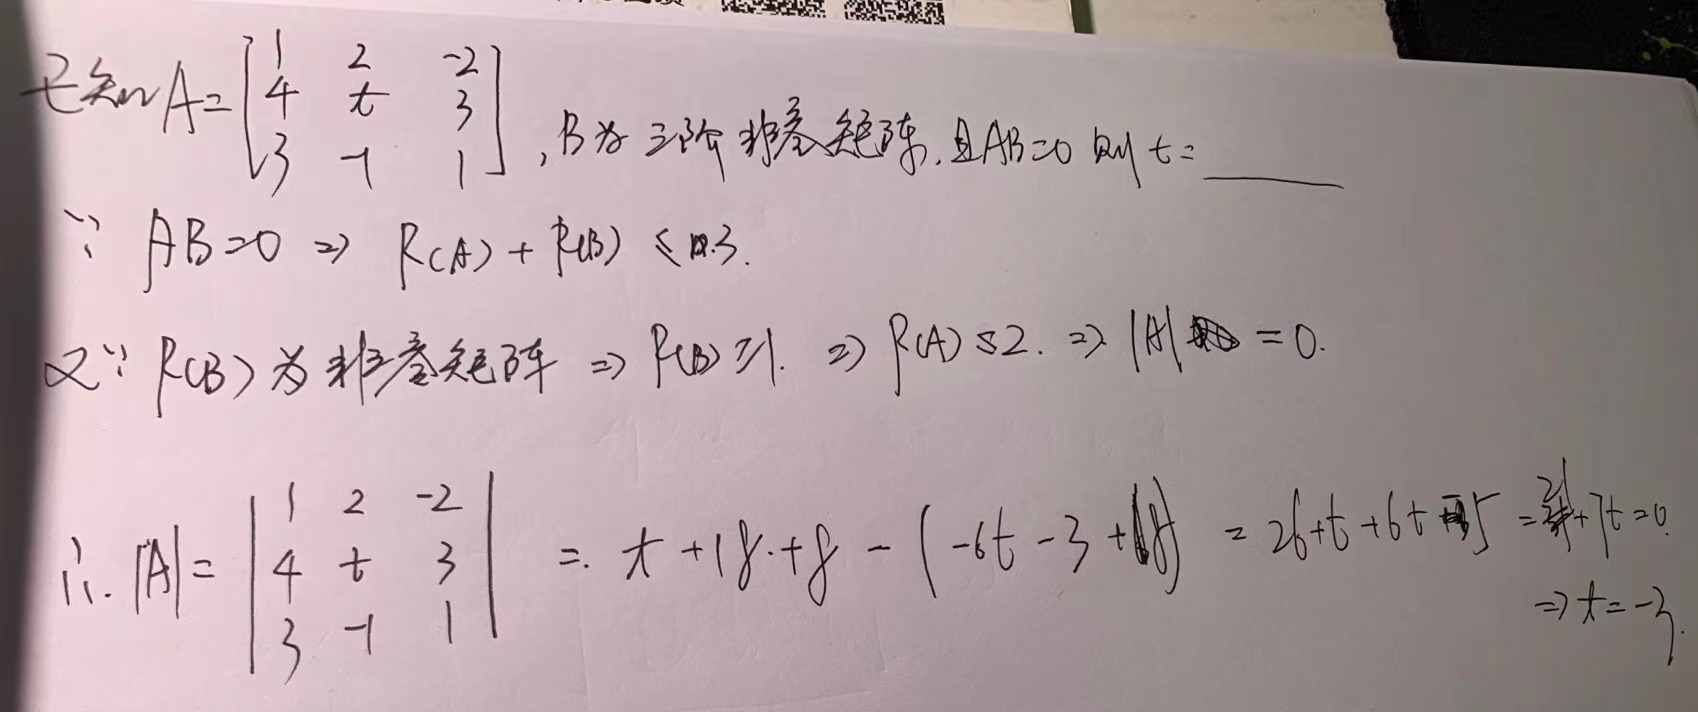 已知A=[1 2 -2
4 t 3
3 -1 1], B为三阶非零矩阵.且AB=0 则t=____
∵ AB=0 ⇒ R(A)+R(B)≤3.
又∵ R(B)为非零矩阵 ⇒ R(B)≥1. ⇒ R(A)≤2. ⇒ |A| =0.
∴ |A|= |1 2 -2
4 t 3
3 -1 1| = t+18+8-(-6t-3+8) = 26+t+6t-5 = 21+7t=0.
⇒ t=-3.